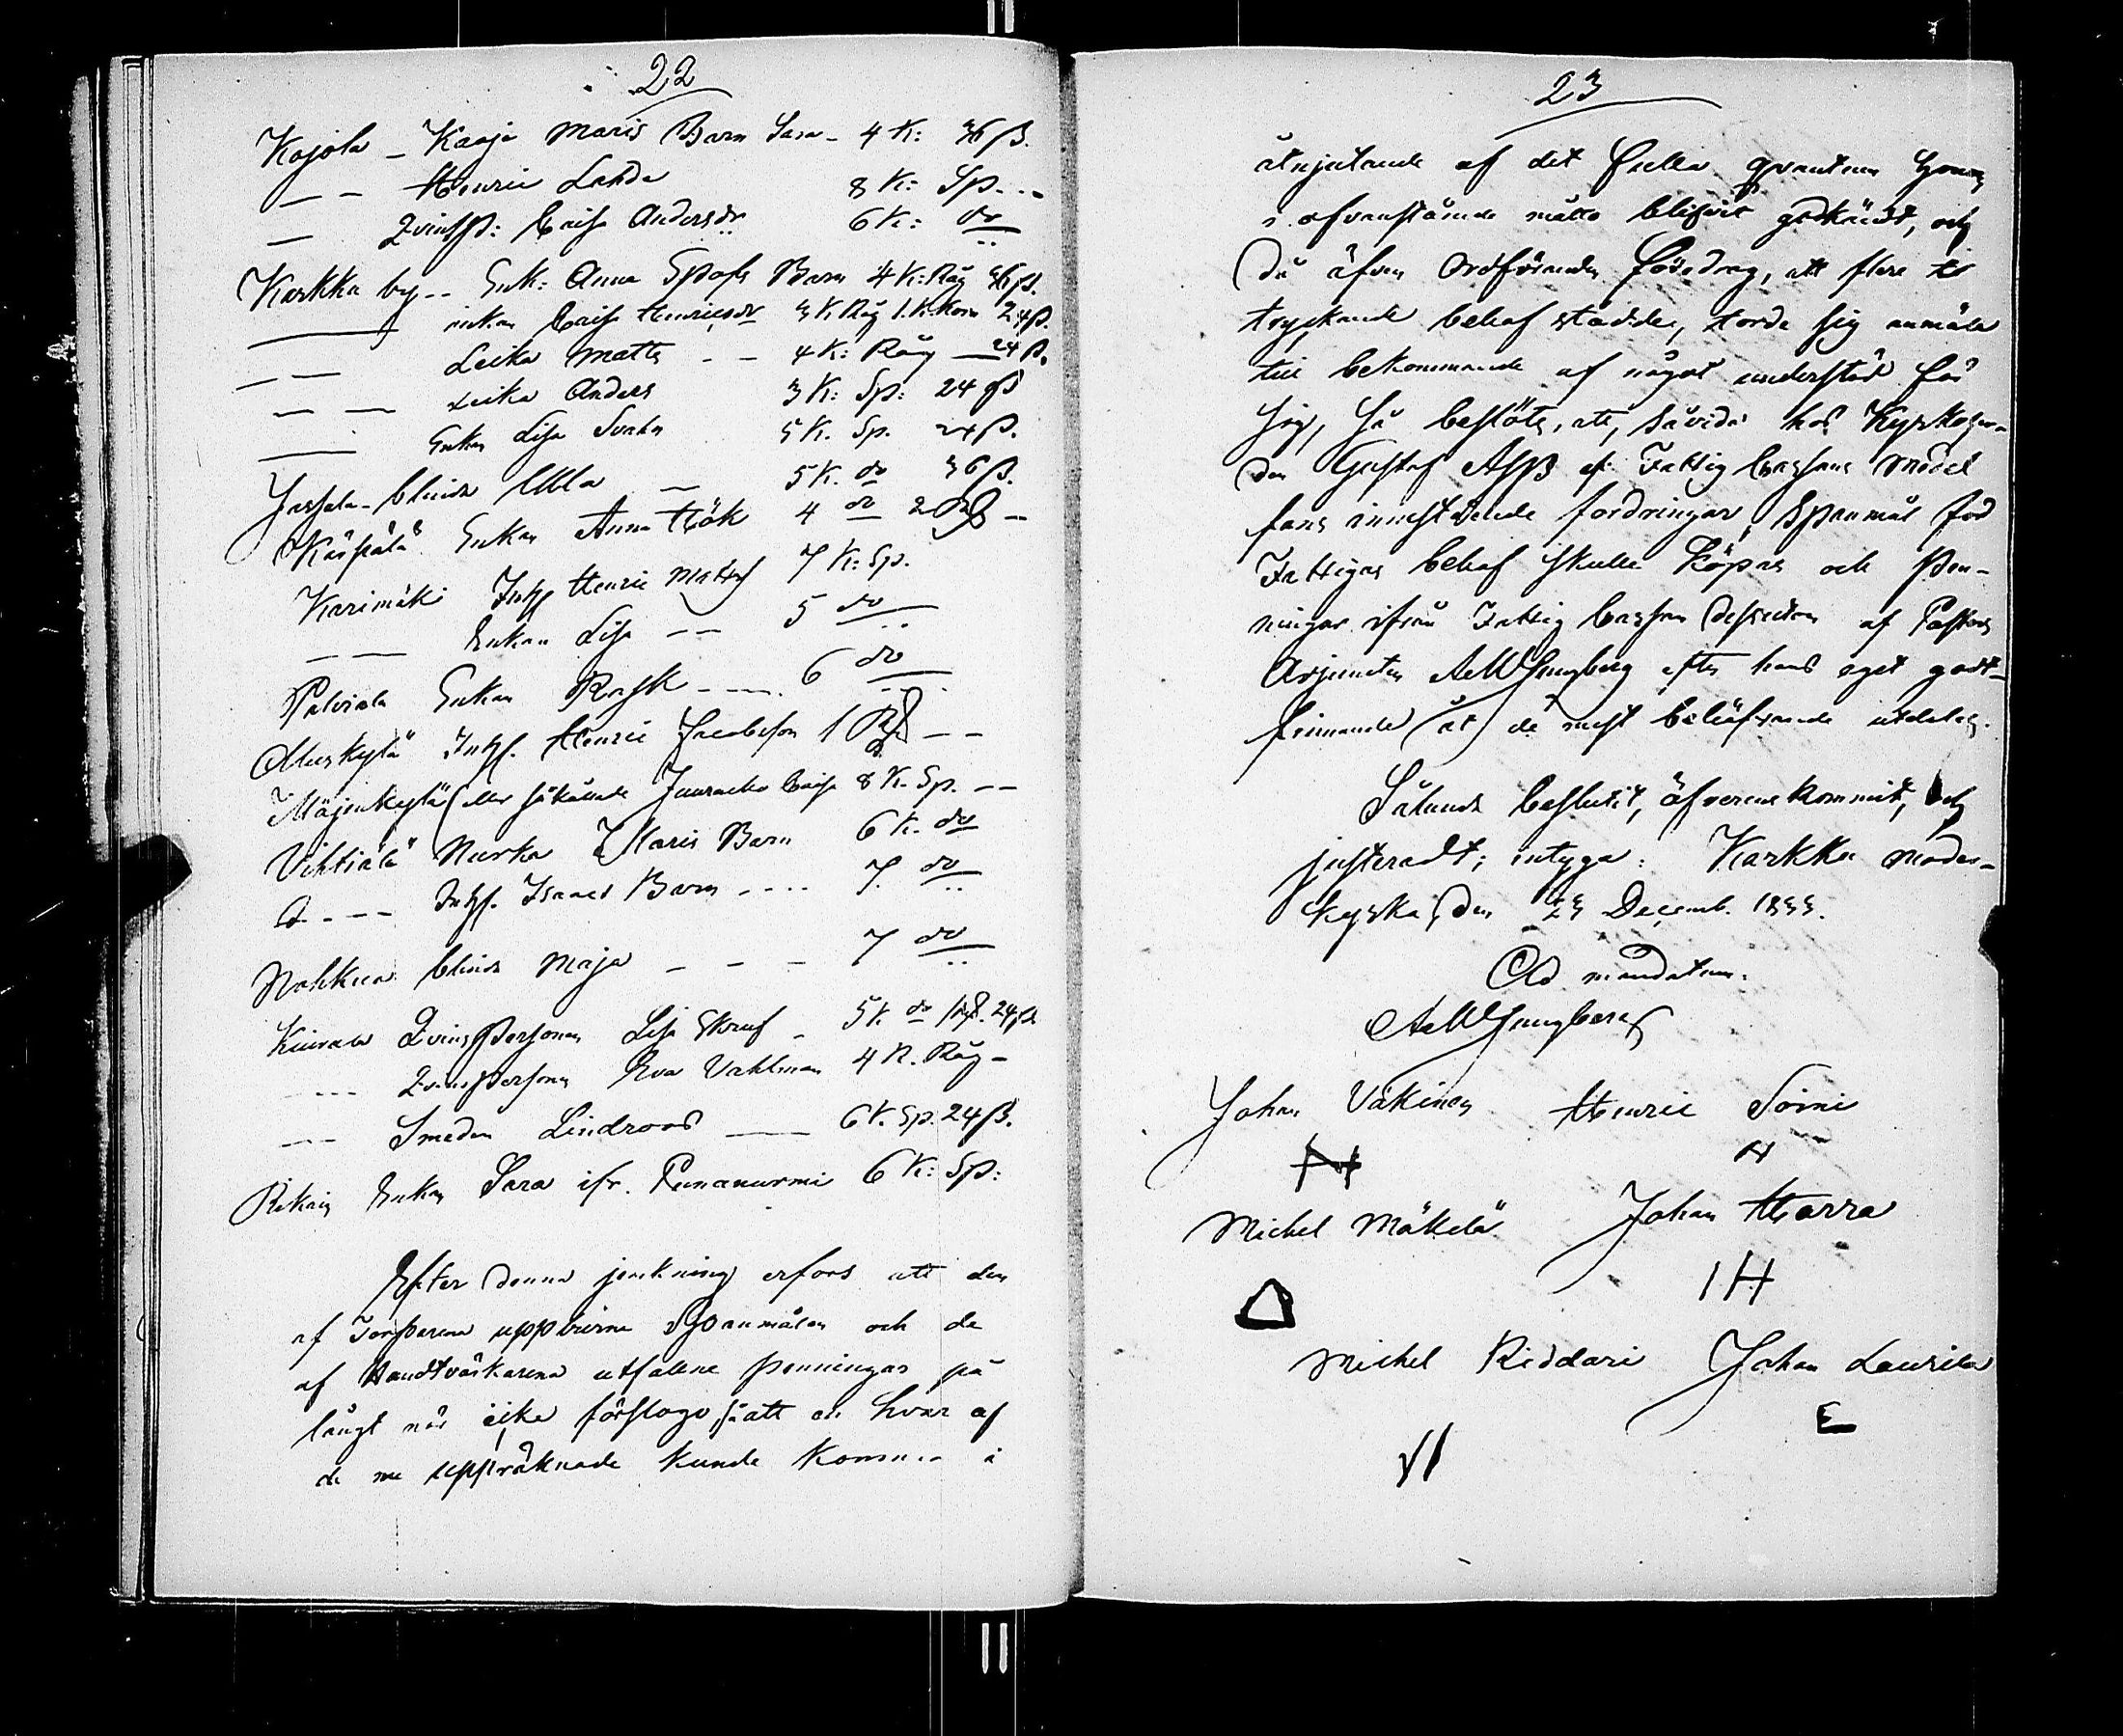 22
Kojola - Kaaja Maris Barn Sara - 4 K: 36 ß.
— — Henric Lahda 8 K: Sp. - -
— Qvinsp: Caisa Andersdr 6 K: do
Karkku by - - Enk: Anna Spofs Barn 4 K: Råg 36 ß.
— enkan Caisa Henricsdr 3 K Råg 1 K. Korn 24 ß.
— — Leika Matts - - 4 K: Råg — 24 ß.
— — Leika Anders 3 K: Sp: 24 ß
— Enkan Lisa Svahn 5 K. Sp. 24 ß.
blinda Ulla — 5 K. do 36 ß.
Enkan Anna Höök 4 do 2 R —
Karimäki Inhs Henric Matts 7 K: Sp.
— — Enkan Lisa - - 5 do
Palviala Enkan Rask - - 6 do
Muskylä Inhs. Henric Jacobsson 1 R - -
Mäjenkylä Caisa 8 K. Sp. - -
Vihtiälä Maris Barn 6 K. do
d - - - Inhs. Isaacs Barn - - - - 7. do
Nohkua blinda Maja - - - 7 do
Kiurala Qvinspersonen Lisa Skruf - 5 K. do 24 ß
- - - Qvinspersonen Eva Vahlman 4 K. Råg -
- - - Smeden Lindroos — 6 K. Sp. 24 ß.
Enkan Sara ifr. Punanurmi 6 K: Sp:
Efter denna jemkning erfors att den
af Torparena uppburne Spanmålen och de
af Handtvärkarena utfallne penningar på
långt när icke förslogo, så att en hvar af
de nu uppräknade kunde komma i
23
åtnjutande af det fulla quantum
i ofvanstående måtto blifvit godkändt, och
då äfven Ordföranden föredrog, att flere i
tryckande behof stadde, torde sig anmäla
till bekommande af något understöd för
sig, så beslöts, att, såvida hos Kyrkoher-
den Gustaf Alfß af Fattig Cassans medel
fans innestående fordringar, Spanmål för
Fattigas behof skulle köpas och Pen-
ningar ifrån Fattig Cassan dessutom af Pastors
Adjuncten AeWLjungberg efter hans eget godt-
finnande åt de mest behöfvande utdelas.
Sålunda beslutit, öfverenskommit, och
justeradt; intyga: Karkku moder-
kyrka, den 23 Decemb. 1833.
Ad mandatum:
AeWLjungberg
Johan Väkinen Henric Soini
Michel Mäkelä Johan Harra
IH
Michel Riddari Johan Laurila